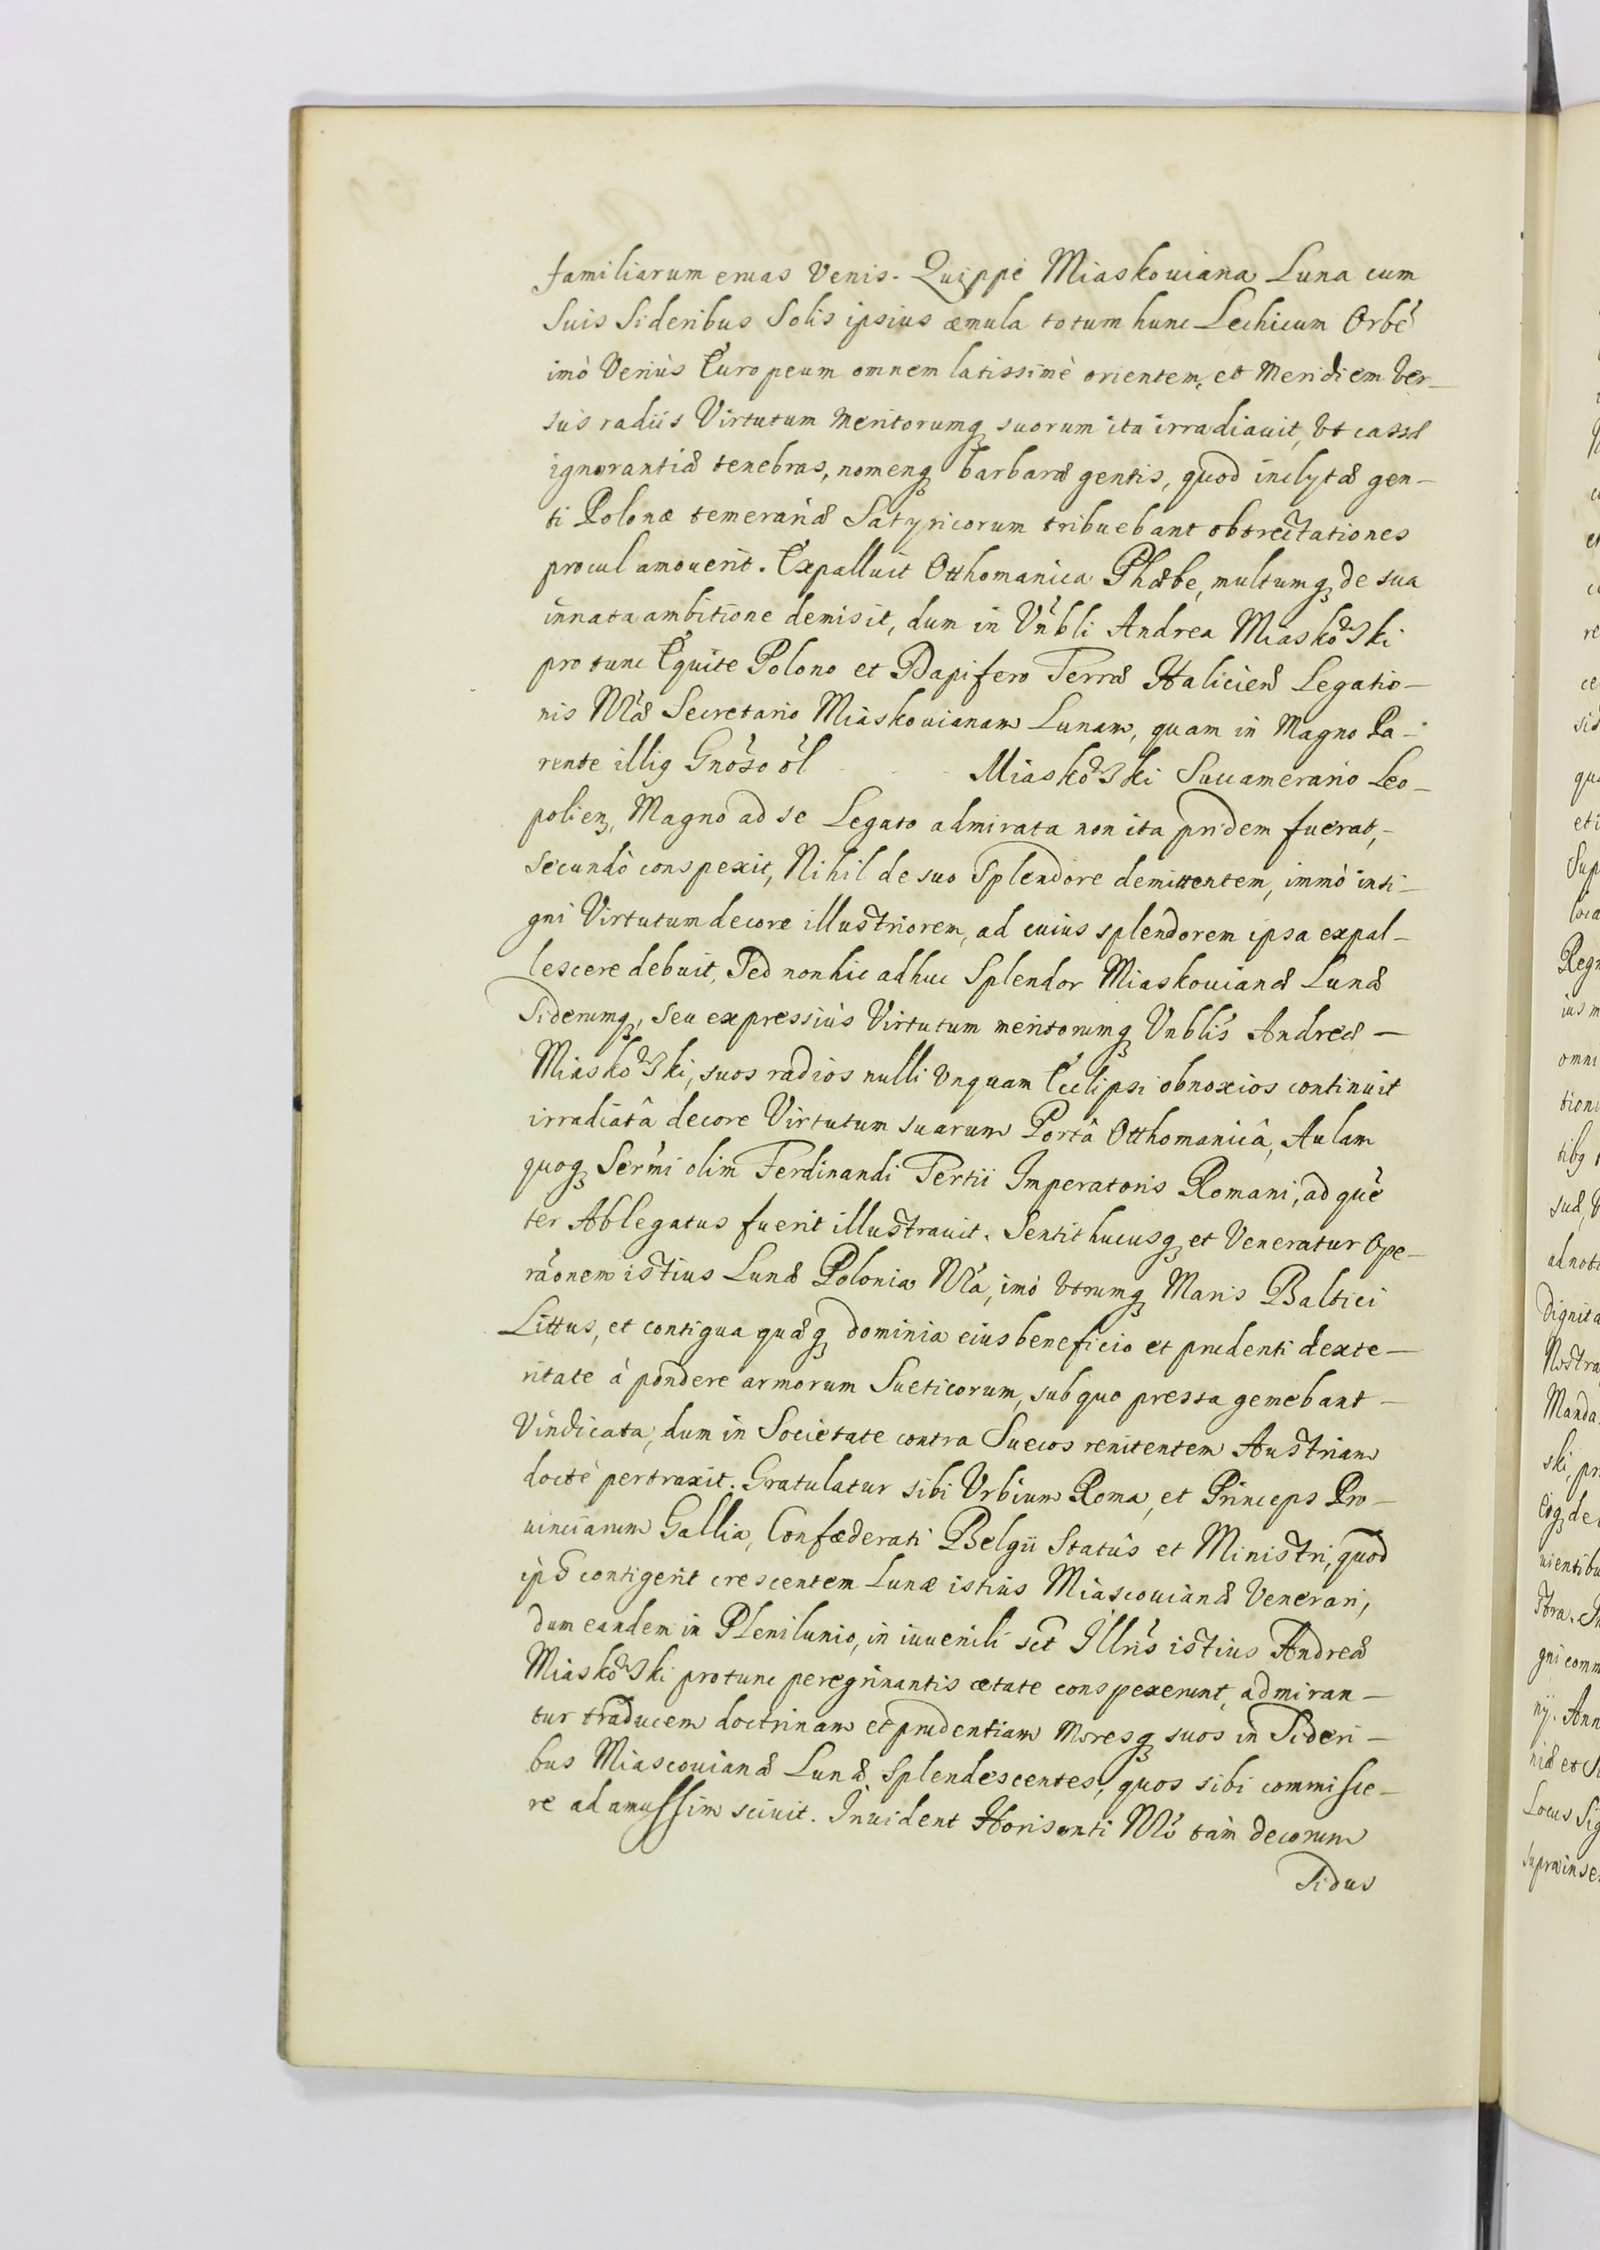 familiarum eruas Venis. Quippe Miaskouiana Luna cum
Suis Sideribus Solis ipsius æmula totum hunc Lechicum Orbē
imò Veriùs Europeum omnem latissimè orientem, et Meridiem Ver-
sùs radiis Virtutum Meritorumq suorum ita irradiauit, Vt cassæ
ignorantiæ tenebras, nomenq barbaræ gentis, quod inclytæ gen-
ti Polonæ temerariæ Satyricorum tribuebant obtrectationes
procul amouerit. Expalluit Otthomanica Phæbe, multumq de sua
innata ambitione demisit, dum in Vrñbli Andrea Miaskowski
pro tunc Equite Polono et Dapifero Terræ Haliciēn Legatio-
nis Nræ Secretario Miaskouianam Lunam, quam in Magno Pa-
rente illiq Gnoso ol Miaskowski Succamerario Leo-
polien, Magno ad se Legato admirata non ita pridem fuerat,-
Secundò conspexit, Nihil de suo Splendore demittentem, immò insi-
gni Virtutum decore illustriorem, ad cuius splendorem ipsa expal-
lescere debuit, Sed non hic adhuc Splendor Miaskouianæ Lunæ
Siderumq, seu expressiùs Virtutum meritorumq Vnblis Andreæ -
Miaskowski, suos radios nulli Vnquam Ecclipsi obnoxios continuit
irradiatâ decore Virtutum suarum Portâ Otthomanicâ, Aulam
quoq Sermi olim Ferdinandi Tertii Imperatoris Romani, ad quē
ter Ablegatus fuerit illustrauit. Sentit hucusq et Veneratur Ope-
raonem istius Lunæ Polonia Nra, imò Vtrumq Maris Baltici
Littus, et contigua quæq dominia eius beneficio et prudenti dexte-
ritate à pondere armorum Sueticorum, sub quo pressa gemebant -
Vindicata, dum in Societate contra Suecos renitentem Austriam
doctè pertraxit. Gratulatur sibi Vrbium Roma, et Princeps Pro-
uinciarum Gallia, Confæderati Belgii Statûs et Ministri, quod
ipis contigerit crescentem Lunæ istius Miascouianæ Venerari,
dum eandem in Plenilunio, in iuuenili sct Illris istius Andreæ
Miaskowski protunc peregrinantis ætate conspexerunt, admiran-
tur traducem doctrinam et prudentiam Moresq suos in Sideri-
bus Miascouianæ Lunæ Splendescentes, quos sibi commisce-
re ad amussim sciuit. Inuident Horisonti Nro tàm decorum
Sidus